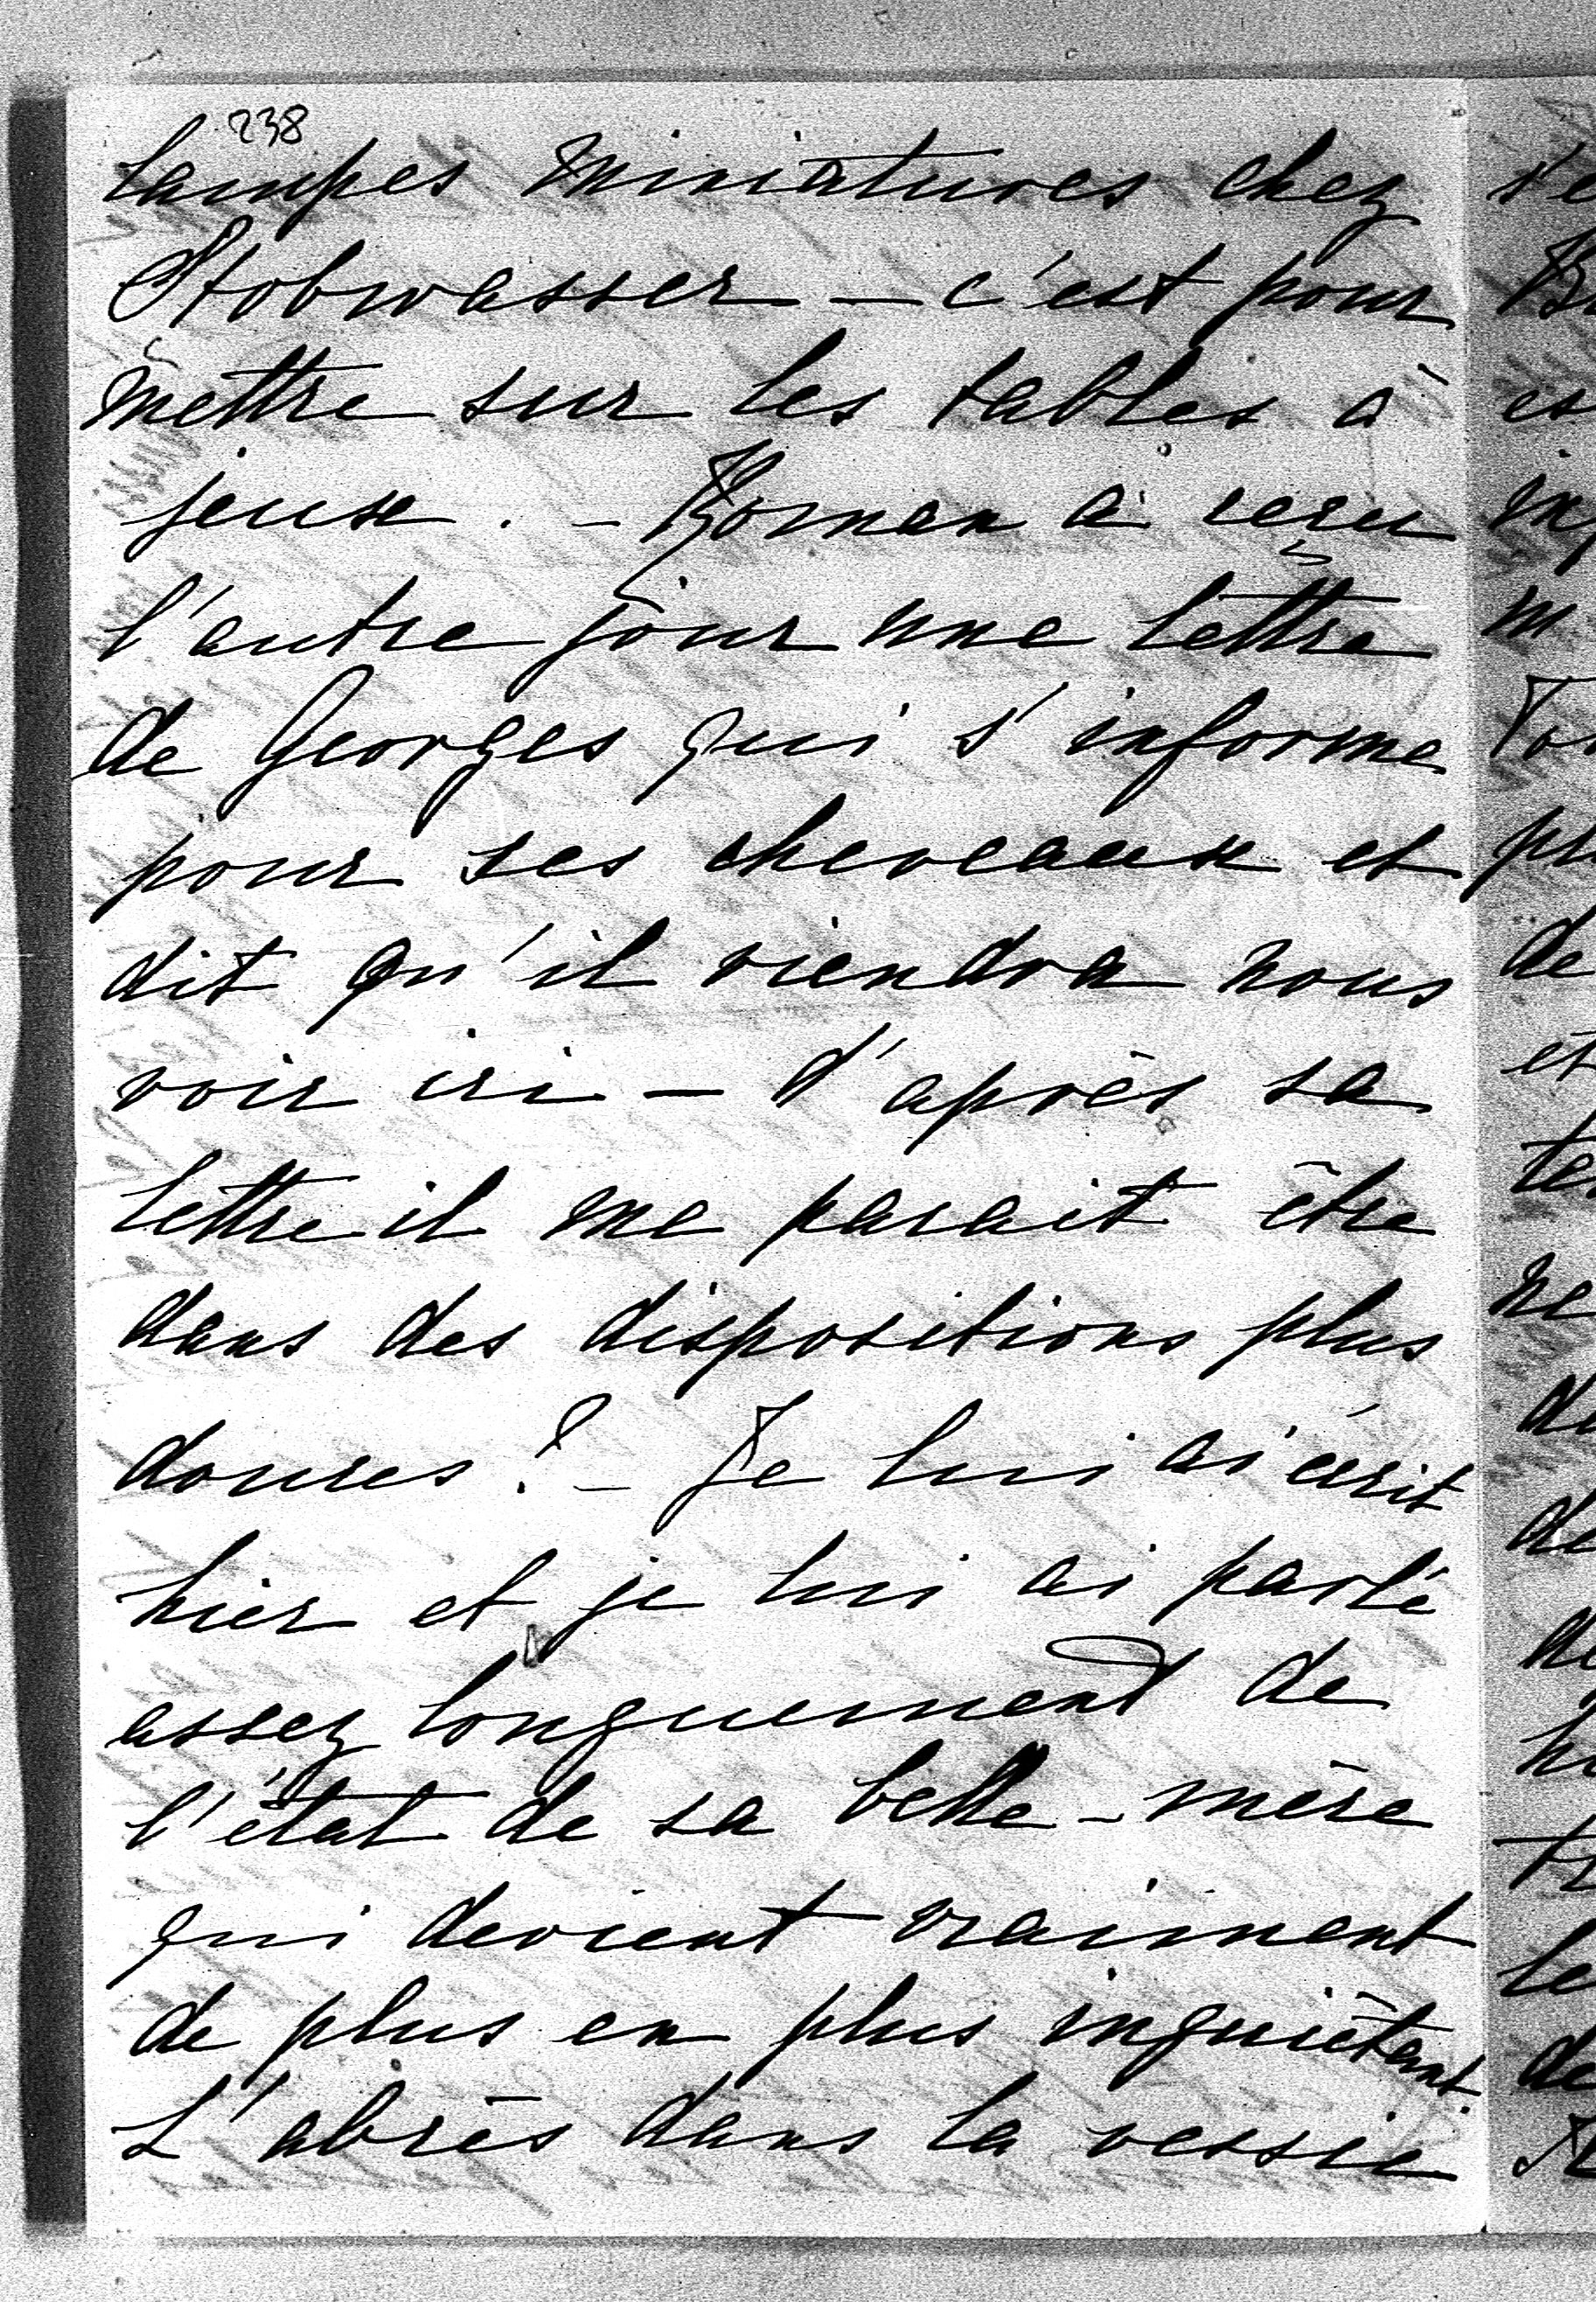 238
lampes miniatures chez
Stobwasser — c'est pour
mettre sur les tables à
jeux. – Roman a reçu
l'autre jour une lettre
de Georges qui s'informe
pour ses cheveaux et
dit qu'il viendra nous
voir ici — d'après sa
lettre il me parait être
dans des dispositions plus
douces? – Je lui ai écrit
hier et je lui ai parlé
assez longuement de
l'état de sa belle-mère
qui devient vraiment
de plus en plus inquiètant.
L'abcès dans la vessie